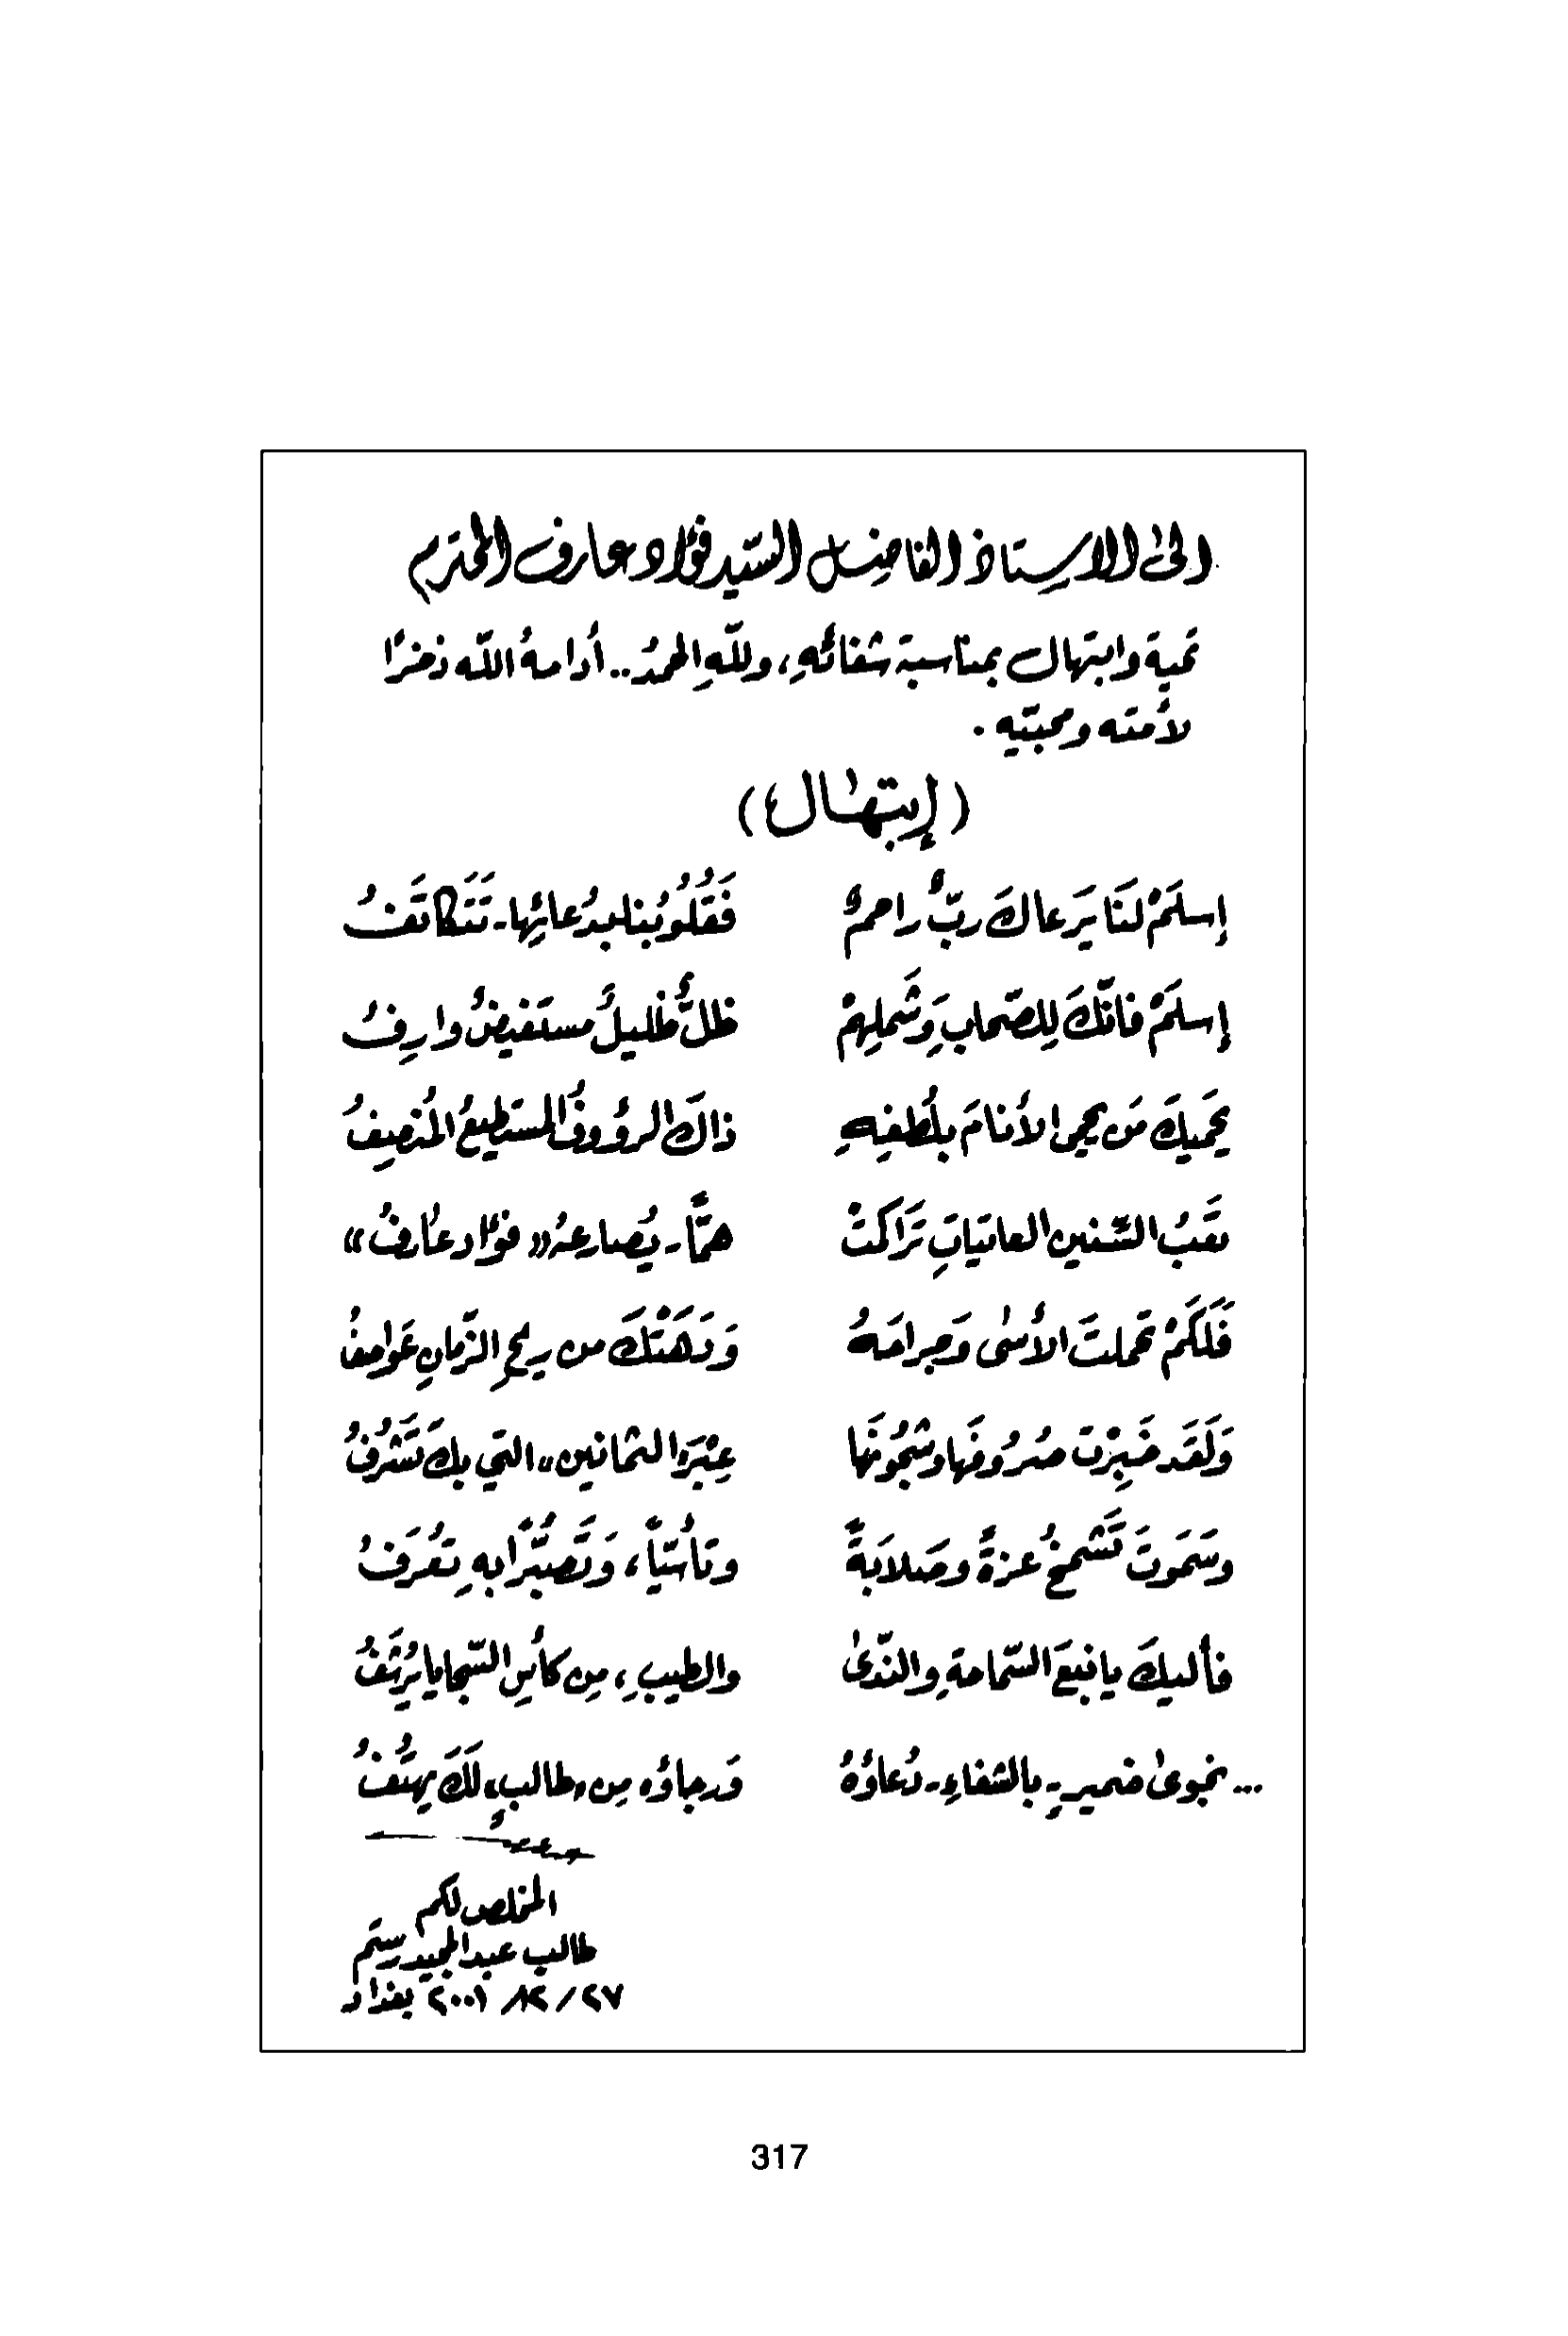 الى الاستاذ الفاضل السيّد فؤاد عارف المحترم
تحية وابتهال بمناسبة شفائهِ، وللّهِ الحمدُ.. أدامهُ اللّه ذخرًا
لأمته ومحبّيه .
(إبتهال)
إسلَمْ لنَا يَرعاكَ ربٌّ راحمٌ فَقُلُوبُنا بدُعائِها - تَتَكاتَفُ
إسلَمْ فانّكَ لِلصّحابِ وَشَملِهِمْ ظلٌّ ظليلٌ مستَفيضٌ وارِفُ
يحميكَ مَن يحمي الأنامَ بلُطفِهِ ذاكَ الرؤوفُ المستطيعُ المُنصِفُ
تعَبُ السّنين العاتياتِ تَرَاكمَتْ همًّا - يُصارعهُ «فؤاد عارفُ»
فَلَكَمْ تحملتَ الأسى وَجِراحَهُ وَدَهَتْكَ من ريحِ الزّمانِ عَواصفُ
وَلَقَد خَبِرْتَ صُرُوفَها وشجُونَها عِبْرَ "الثمانين" التي بكَ تَشْرُفُ
وسَمَوتَ تَشمخُ عزةً وصَلابَةً وتأسّياً، وَتَصبُّرًا بهِ تُعْرَفُ
فأليكَ يا نبعَ السّماحةِ والندّى والطيبِ، مِن كأسِ السّجايا يُرْشَفُ
... نجوى ضميرٍ - بالشفاءِ - دُعاؤهُ وَرجاؤه مِن "طالبٍ" لَكَ يهتُفُ
المخلص لكم
طالب عبدالمجيد رستم
٢٧/ ١٢/ ٢٠٠١ بغداد
317